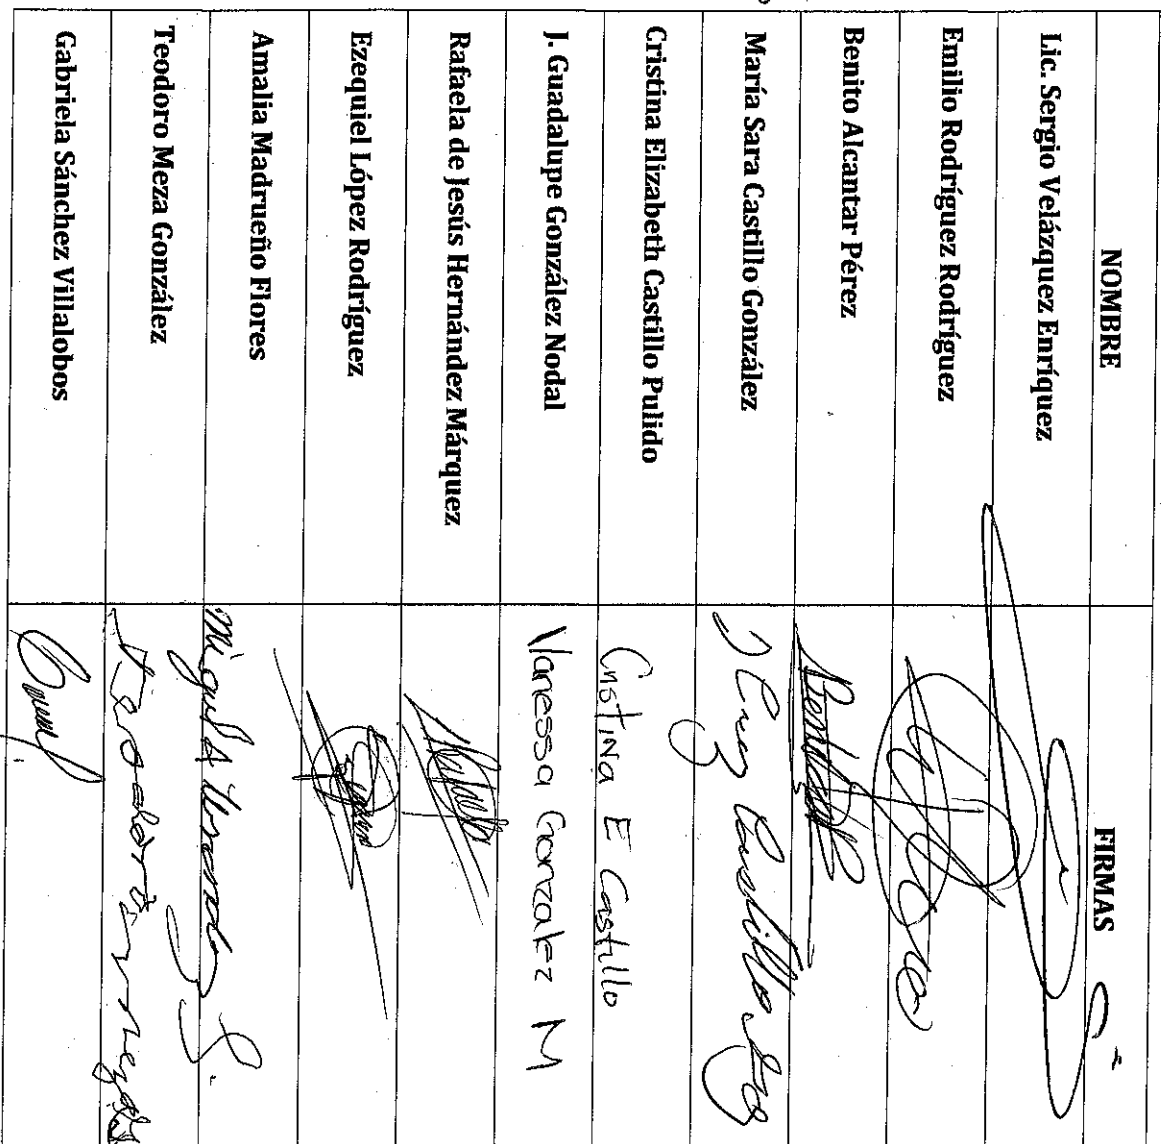 NOMBRE FIRMAS
Lic. Sergio Velázquez Enríquez
Emilio Rodríguez Rodríguez
Benito Alcantar Pérez
María Sara Castillo González Castillo
Cristina Elizabeth Castillo Pulido Cristina E Castillo
J. Guadalupe González Nodal Vanessa Gonzalez M
Rafaela de Jesús Hernández Márquez
Ezequiel López Rodríguez
Amalia Madrueño Flores Miguel A
Teodoro Meza González
Gabriela Sánchez Villalobos